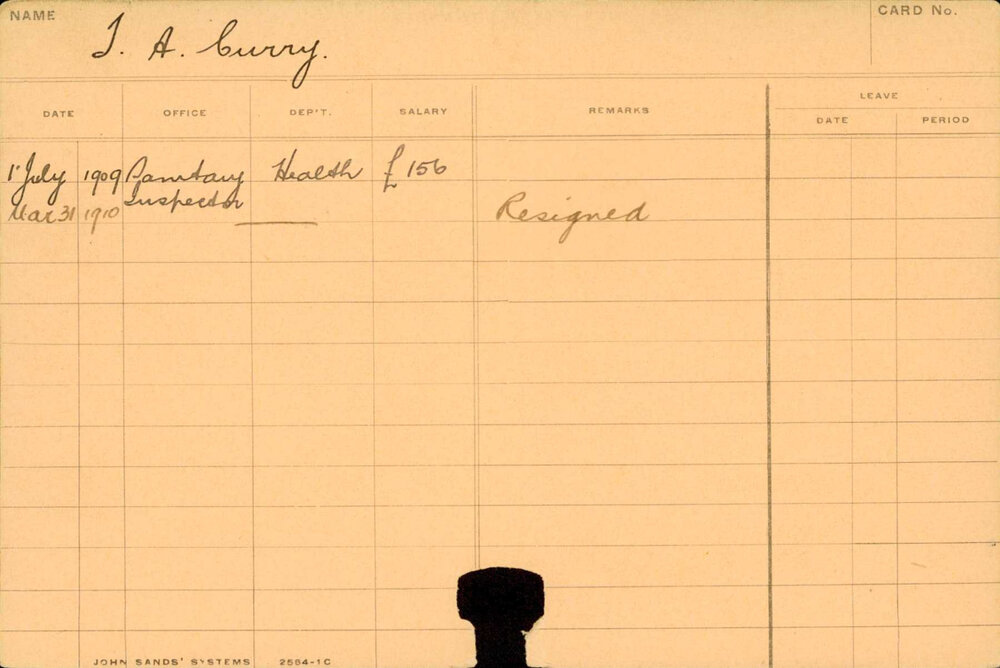 NAME
CARD No.
J. A. Curry.
LEAVE
DATE OFFICE DEP'T. SALARY REMARKS DATE PERIOD
1 July 1909 Sanitary Health £ 156
Inspector
Mar 31 1910 Resigned
JOHN SANDS' SYSTEMS 2584-1C